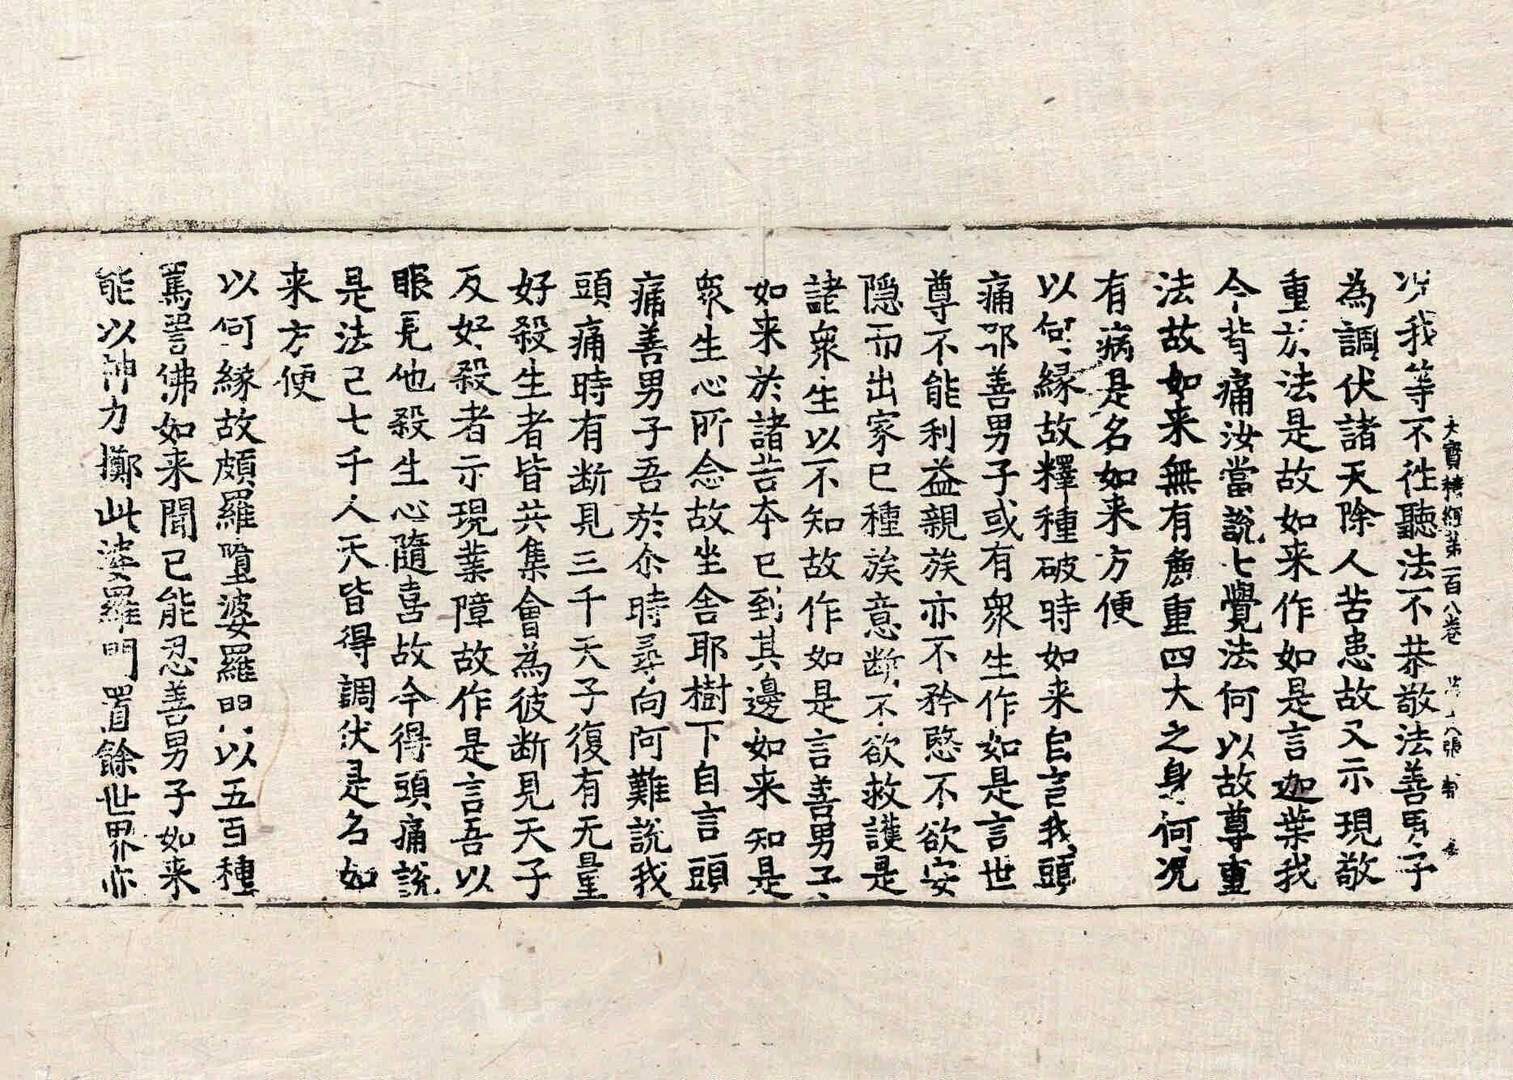 況我等不往聽法不恭敬法善男子
大寶積經第一百八卷
為調伏諸天除人苦患故又示現敬
重於法是故如来作如是言迦葉我
今背痛汝當說七覺法何以故尊重
法故如来無有麁重四大之身何況
有病是名如来方便
以何緣故釋種破時如来自言我頭
痛耶善男子或有衆生作如是言世
尊不能利益親族亦不矜愍不欲安
隱而出家已種族意斷不欲救護是
諸衆生以不知故作如是言善男子
如来於諸苦夲已到其邊如来知是
衆生心所念故坐舎耶樹下自言頭
痛善男子吾於尒時尋向阿難說我
頭痛時有断見三千天子復有无量
好殺生者皆共集會為彼断見天子
及好殺者示現業障故作是言吾以
眼見他殺生心隨喜故今得頭痛說
是法已七千人天皆得調伏是名如
来方便
以何緣故頗羅墮婆羅門以五百種
罵詈佛如来聞已能忍善男子如来
能以神力擲此婆羅門置餘世界亦